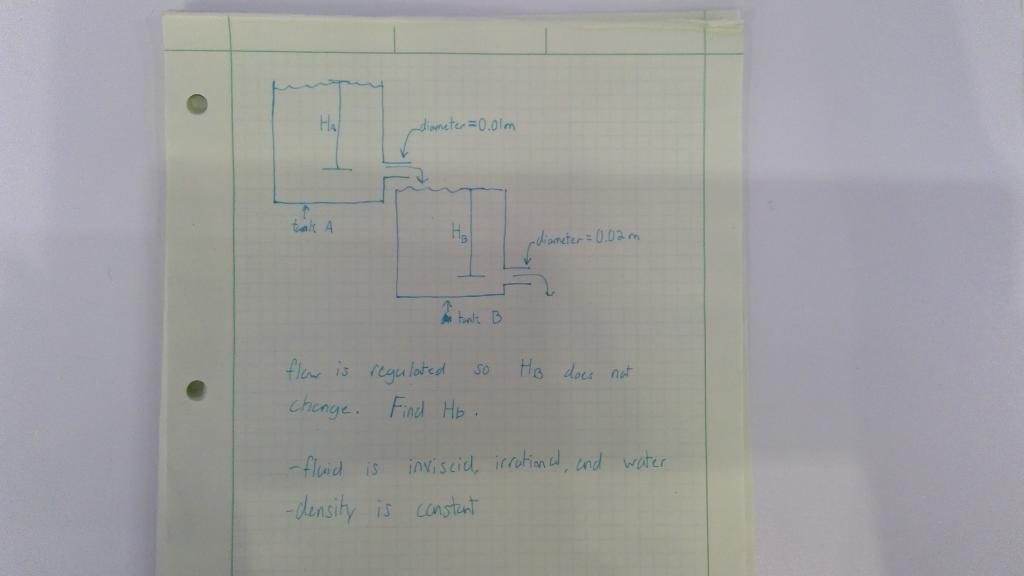 HA
diameter = 0.01m
tank A
HB
diameter = 0.02m
tank B
flow is regulated so HB does not
change. Find Hb.
-fluid is inviscid, irrational, and water
-density is constant